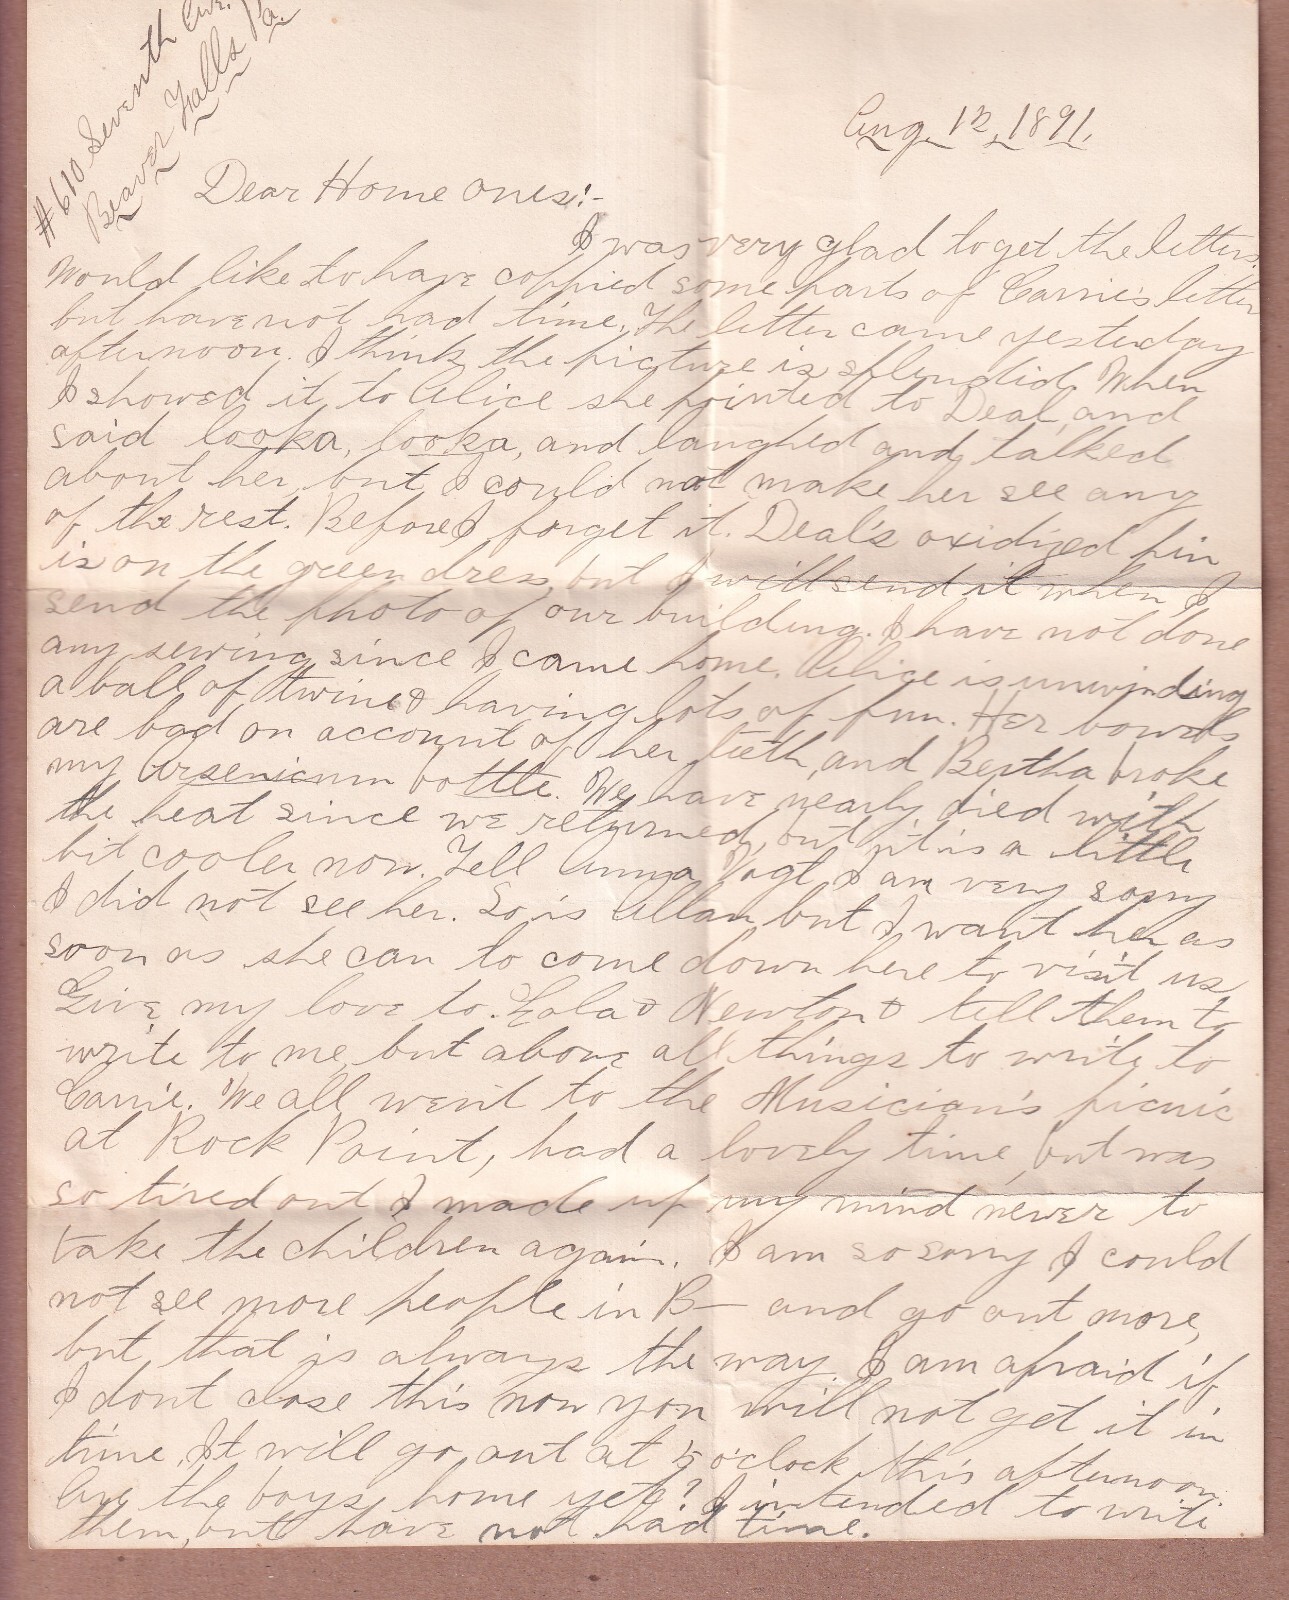 #610 Seventh Ave.
Beaver Falls Pa.
Aug. 12, 1891.
Dear Home ones:-
I was very glad to get the letters.
Would like to have coppied some parts of Carrie's letter
but have not had time. The letter came yesterday
afternoon. I think the picture is splendid. When
I showed it to Alice she pointed to Deal, and
said looka, looka, and laughed and talked
about her, but I could not make her see any
of the rest. Before I forget it. Deal's oxidized pin
is on the green dress, but I will send it when I
send the photo of our building. I have not done
any sewing since I came home. Alice is unwinding
a ball of twine & having lots of fun. Her bowels
are bad on account of her teeth, and Bertha broke
my Arsenicum bottle. We have nearly died with
the heat since we returned, but it is a little
bit cooler now. Tell Anna Vogt I am very sorry
I did not see her. So is Allan, but I want her as
soon as she can to come down here to visit us
Give my love to Lola & Newton & tell them to
write to me, but above all things to write to
Carrie. We all went to the Musician's picnic
at Rock Point, had a lovely time, but was
so tired out I made up my mind never to
take the children again. I am so sorry I could
not see more people in B— and go out more,
but that is always the way. I am afraid if
I dont close this now you will not get it in
time. It will go out at 5 o'clock this afternoon.
Are the boys home yet? I intended to write
them, but have not had time.